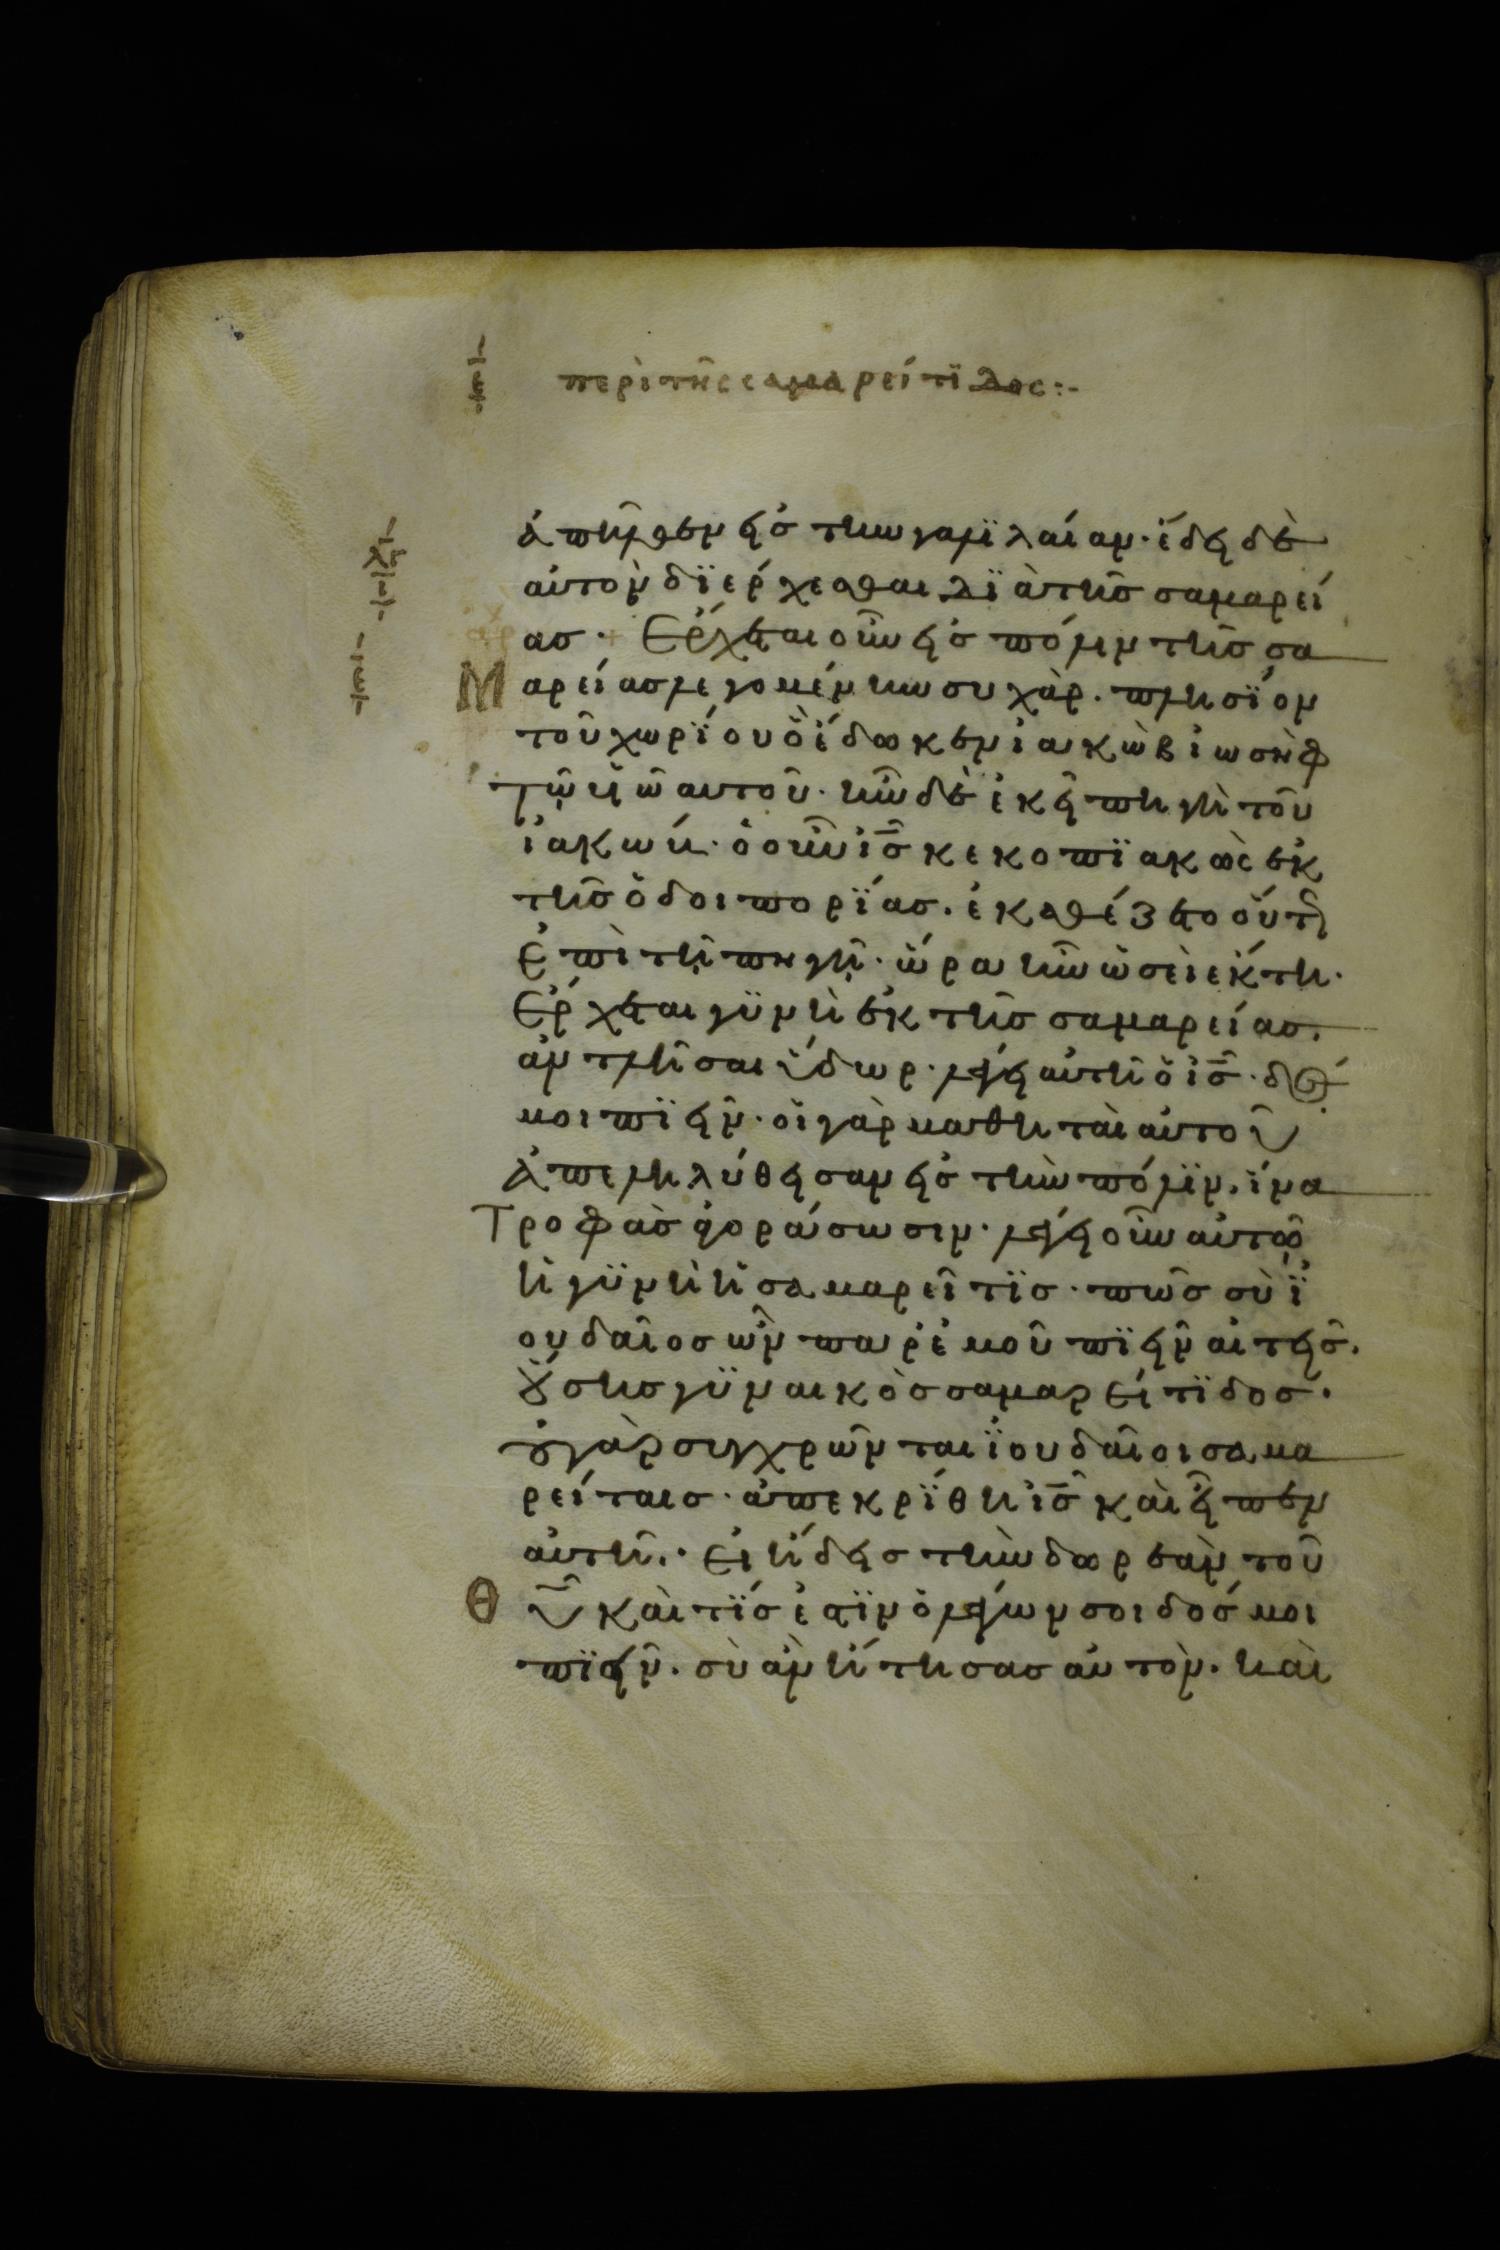 περὶ τῆς σαμαρείτϊδος:-
ἀπῆλθεν εἰσ τὴν γαλϊλαίαν· ἔδει δὲ
αὐτὸν δϊέρχεσθαι δϊὰ τῆσ σαμαρεί
ασ· Ἔρχεται οὖν εἰσ πόλιν τῆσ σα
Μαρείασ λεγομένην συχὰρ. πλησΐον
τοῦ χωρΐου ὃ ἔδωκεν ἰακὼβ ἰωσὴφ
τῷ υἱῶ αυτοῦ· ἦν δὲ ἐκεῖ πηγὴ τοῦ
ἰακώβ· ὁ οὖν ισ κεκοπϊακὼς ἐκ
τῆσ ὁδοιπορΐασ. ἐκαθέζετο οὕτως
ἐπὶ τῇ πηγῇ· ὥρα ἦν ὡσεὶ ἕκτη·
Ἔρχεται γϋνὴ ἐκ τῆσ σαμαρείασ.
ἀντλῆσαι ὕδωρ· λέγει αὐτῆ ὁ ισ· δόσ
μοι πϊεῖν· οἱ γὰρ μαθηταὶ αὐτοῦ
ἀπεληλύθεισαν εἰσ τὴν πόλϊν. ἵνα
Τροφὰσ ἀγοράσωσιν· λέγει οὖν αὐτῷ
ἡ γϋνὴ ἡ σαμαρεῖτϊσ· πῶσ σὺ ϊ
ουδαῖοσ ὢν παρ' ἐμοῦ πϊεῖν αἰτεῖσ.
οὔσησ γϋναικὸσ σαμαρείτϊδοσ·
οὐ γὰρ συγχρῶνται ϊουδαῖοι σαμα
ρείταισ· ἀπεκρΐθη ισ καὶ εἶπεν
αὐτῆ.· Εἰ ἤδεισ τὴν δωρεὰν τοῦ
Θυ καὶ τΐσ ἐστϊν ὁ λέγων σοι δόσ μοι
πϊεῖν. σὺ ἂν ἤτησασ αὐτὸν. καὶ